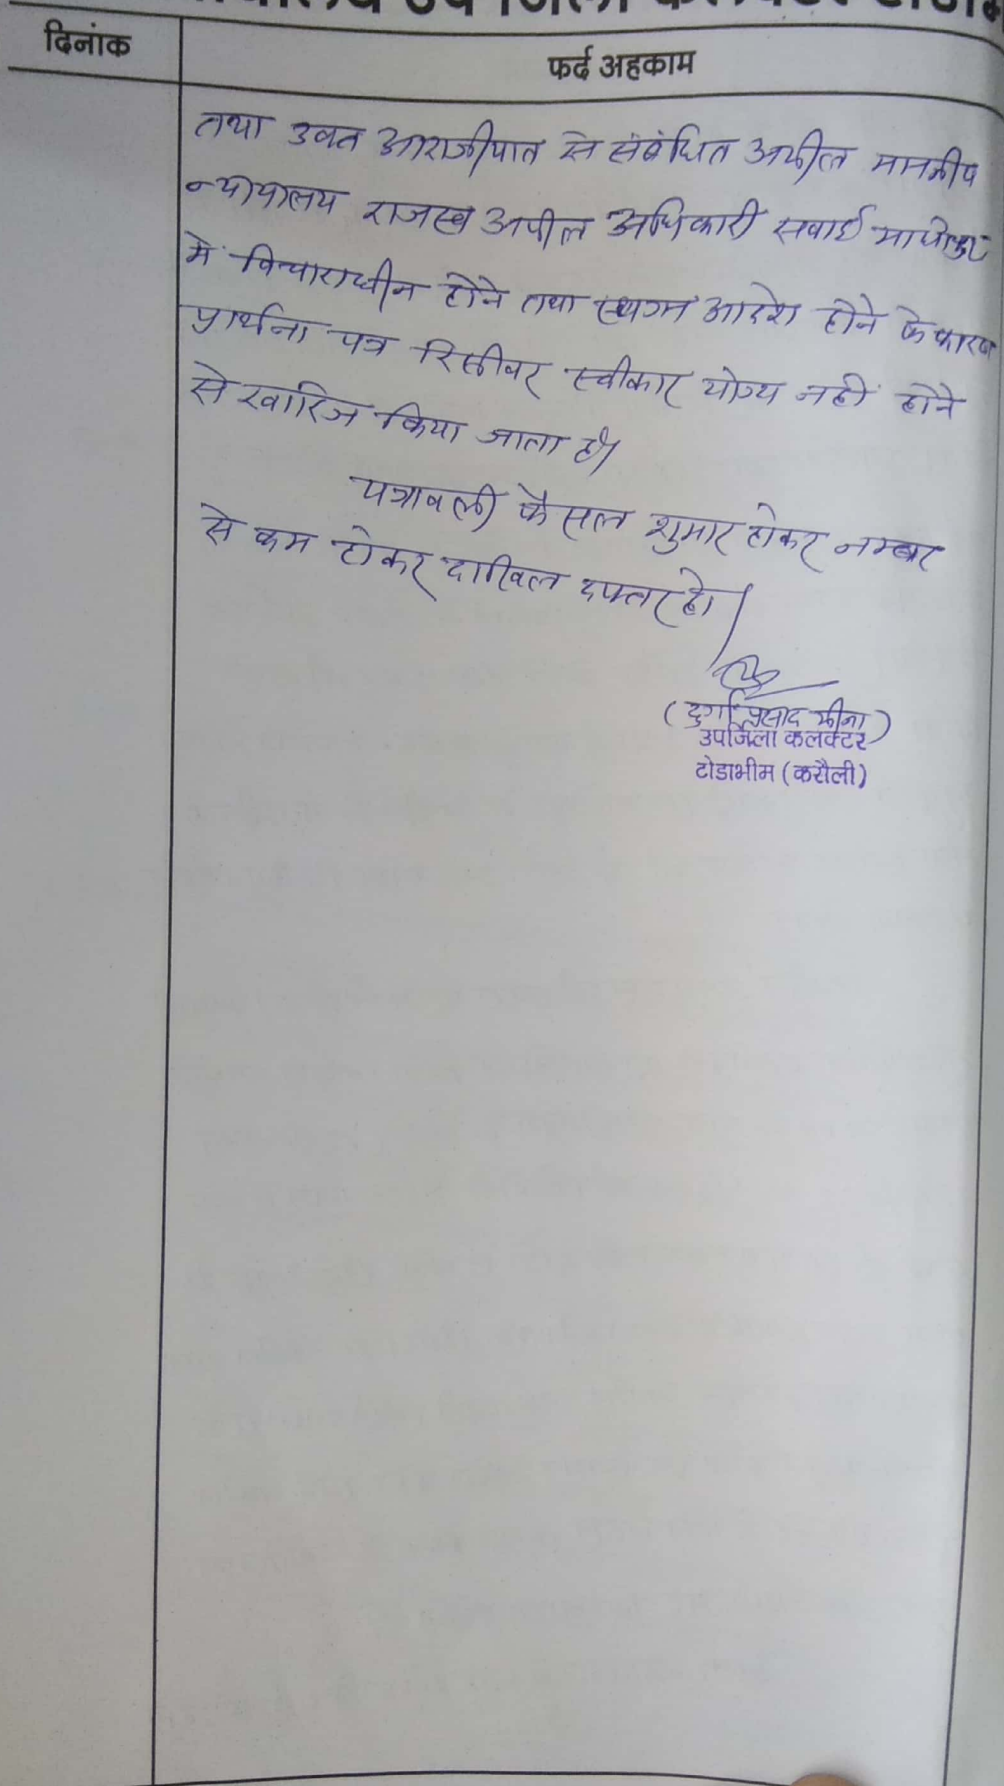 उप जिला कलक्टर
दिनांक
फर्द अहकाम
तथा उक्त आराजीयात से संबंधित अपील माननीय
न्यायालय राजस्व अपील अधिकारी सवाई माधोपुर
में विचाराधीन होने तथा स्थगन आदेश होने के कारण
प्रार्थना पत्र रिसीवर स्वीकार योग्य नहीं होने
से खारिज किया जाता है।
पत्रावली फैसल शुमार होकर नम्बर
से कम होकर दाखिल दफ्तर हो।
(दुर्गा प्रसाद मीना)
उपजिला कलक्टर
टोडाभीम (करौली)